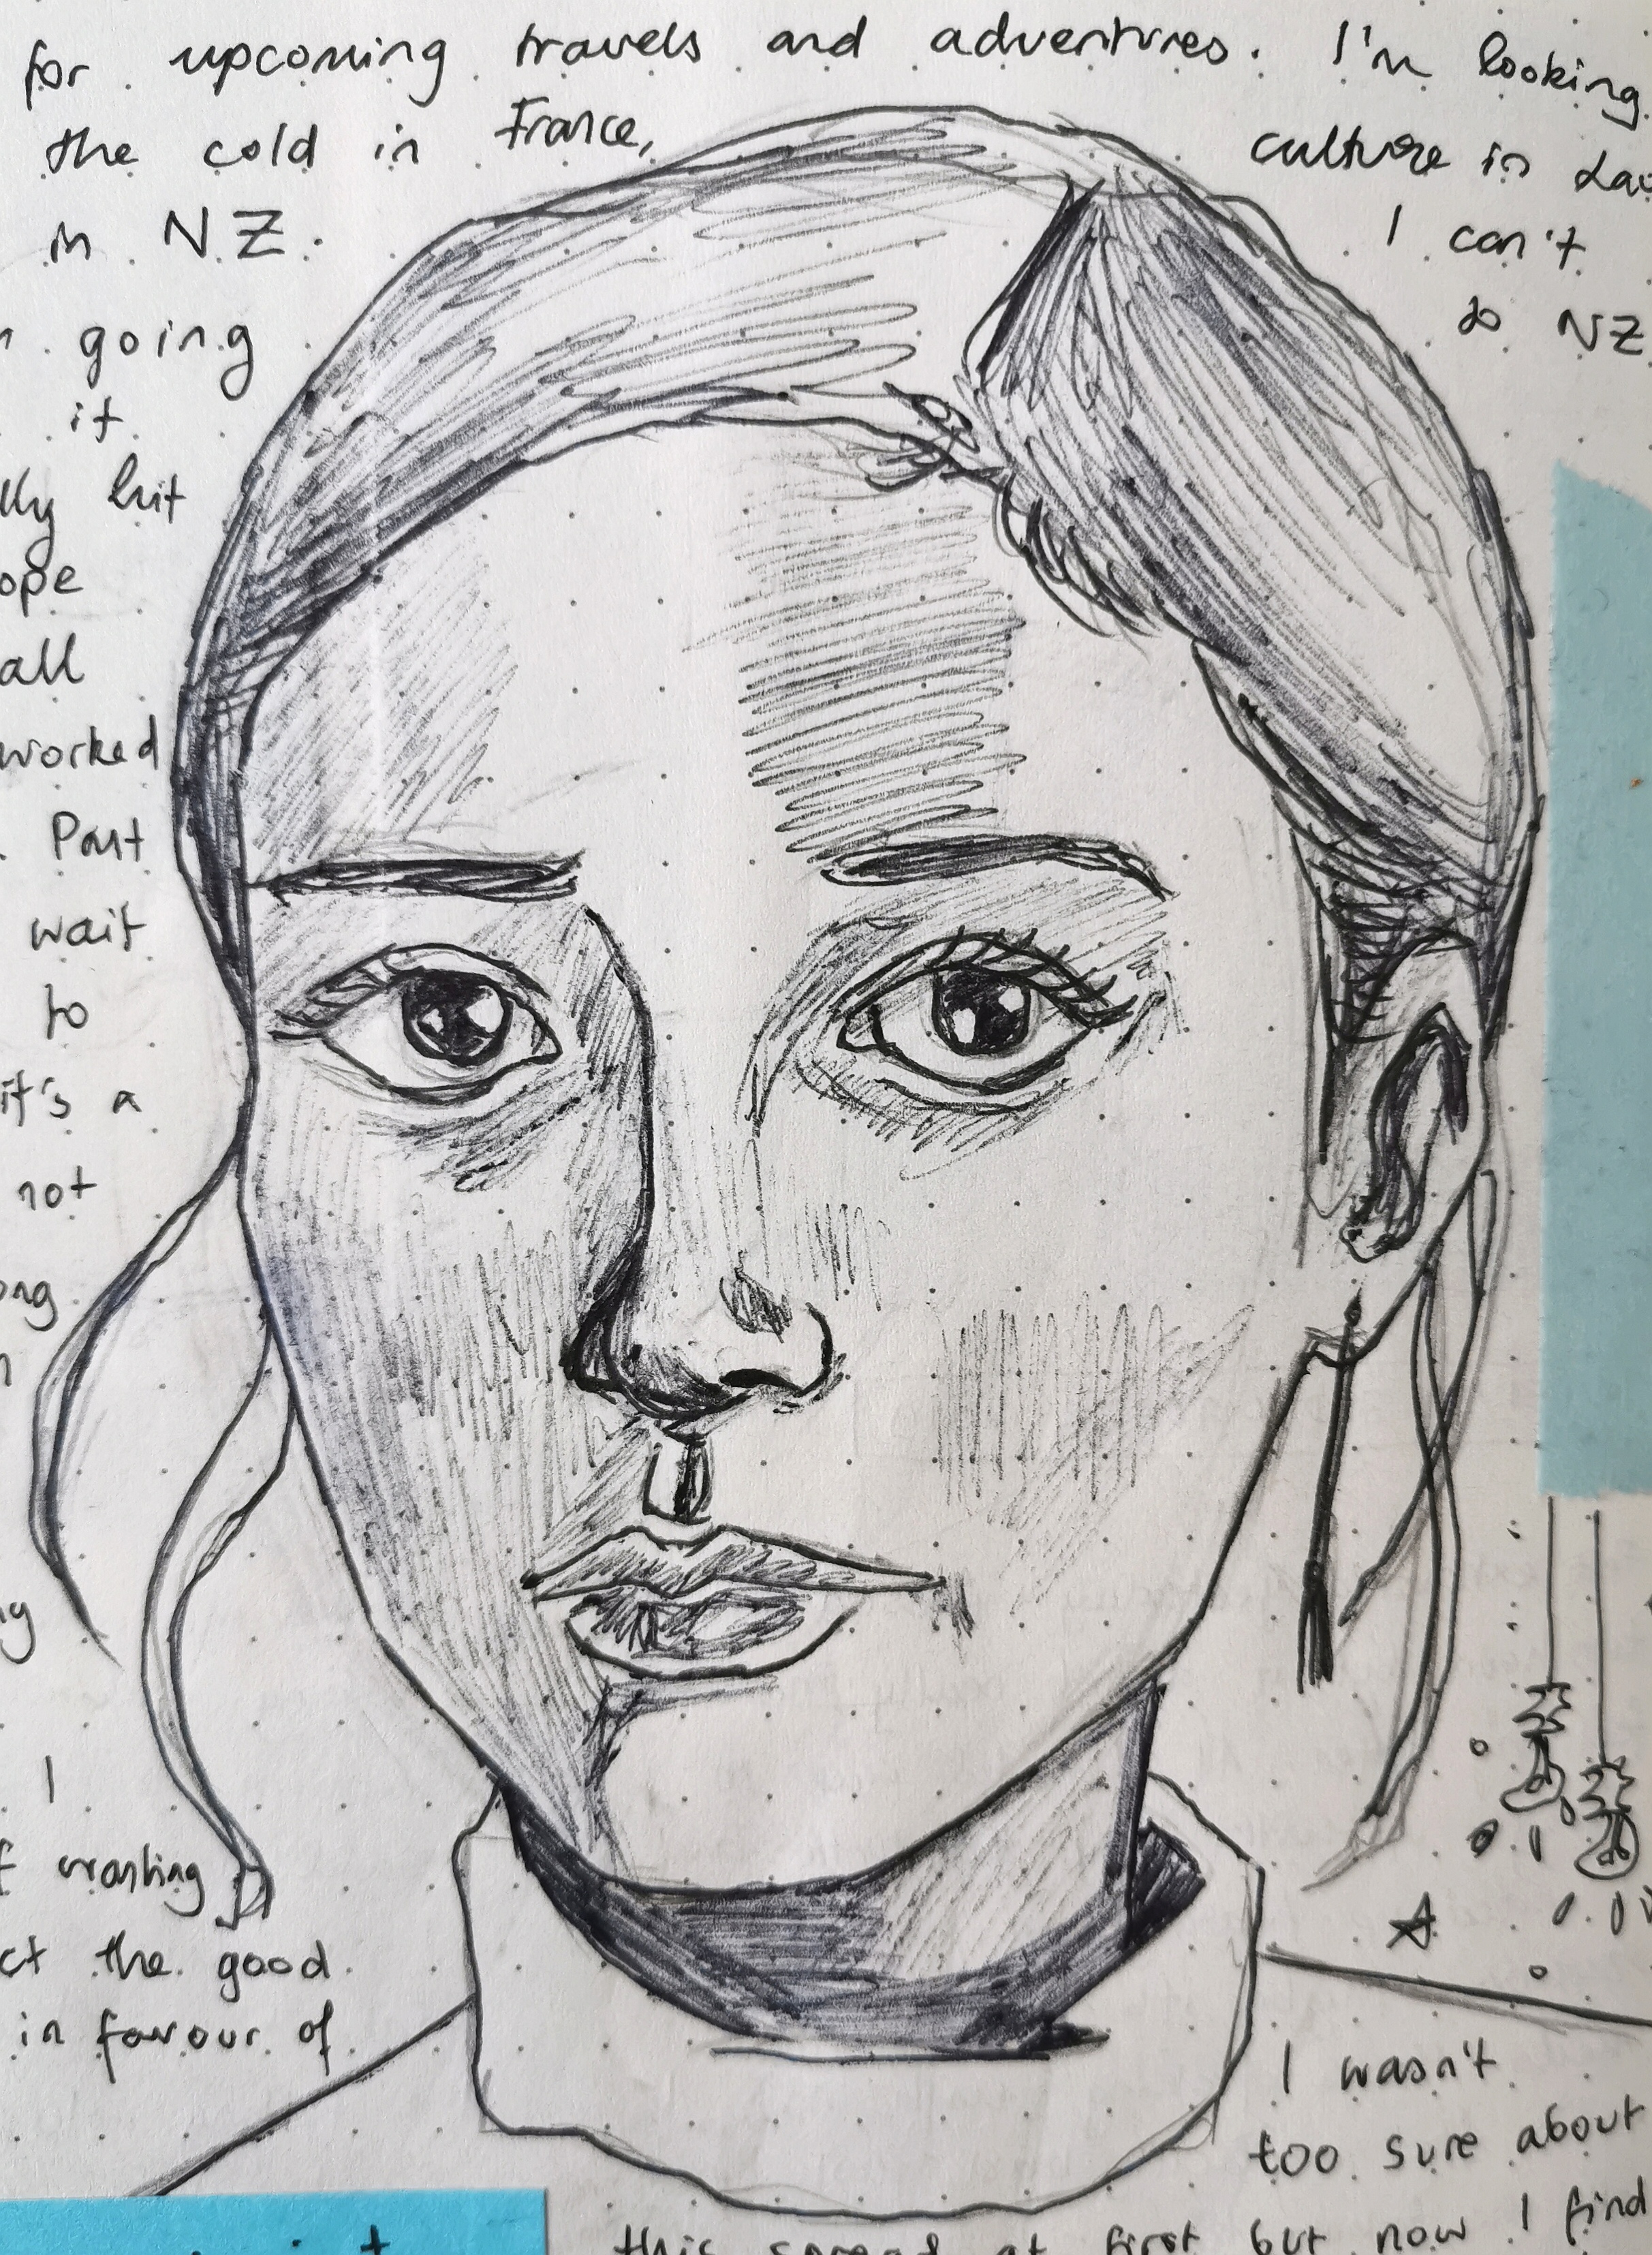 for upcoming travels and adventures. I'm looking
the cold in France, culture in
in NZ. I can't
going to NZ
it
hit
all
worked
Part
wait
to
it's a
not
I
the good
in favour of
I wasn't
too sure about
this spread at first but now I find